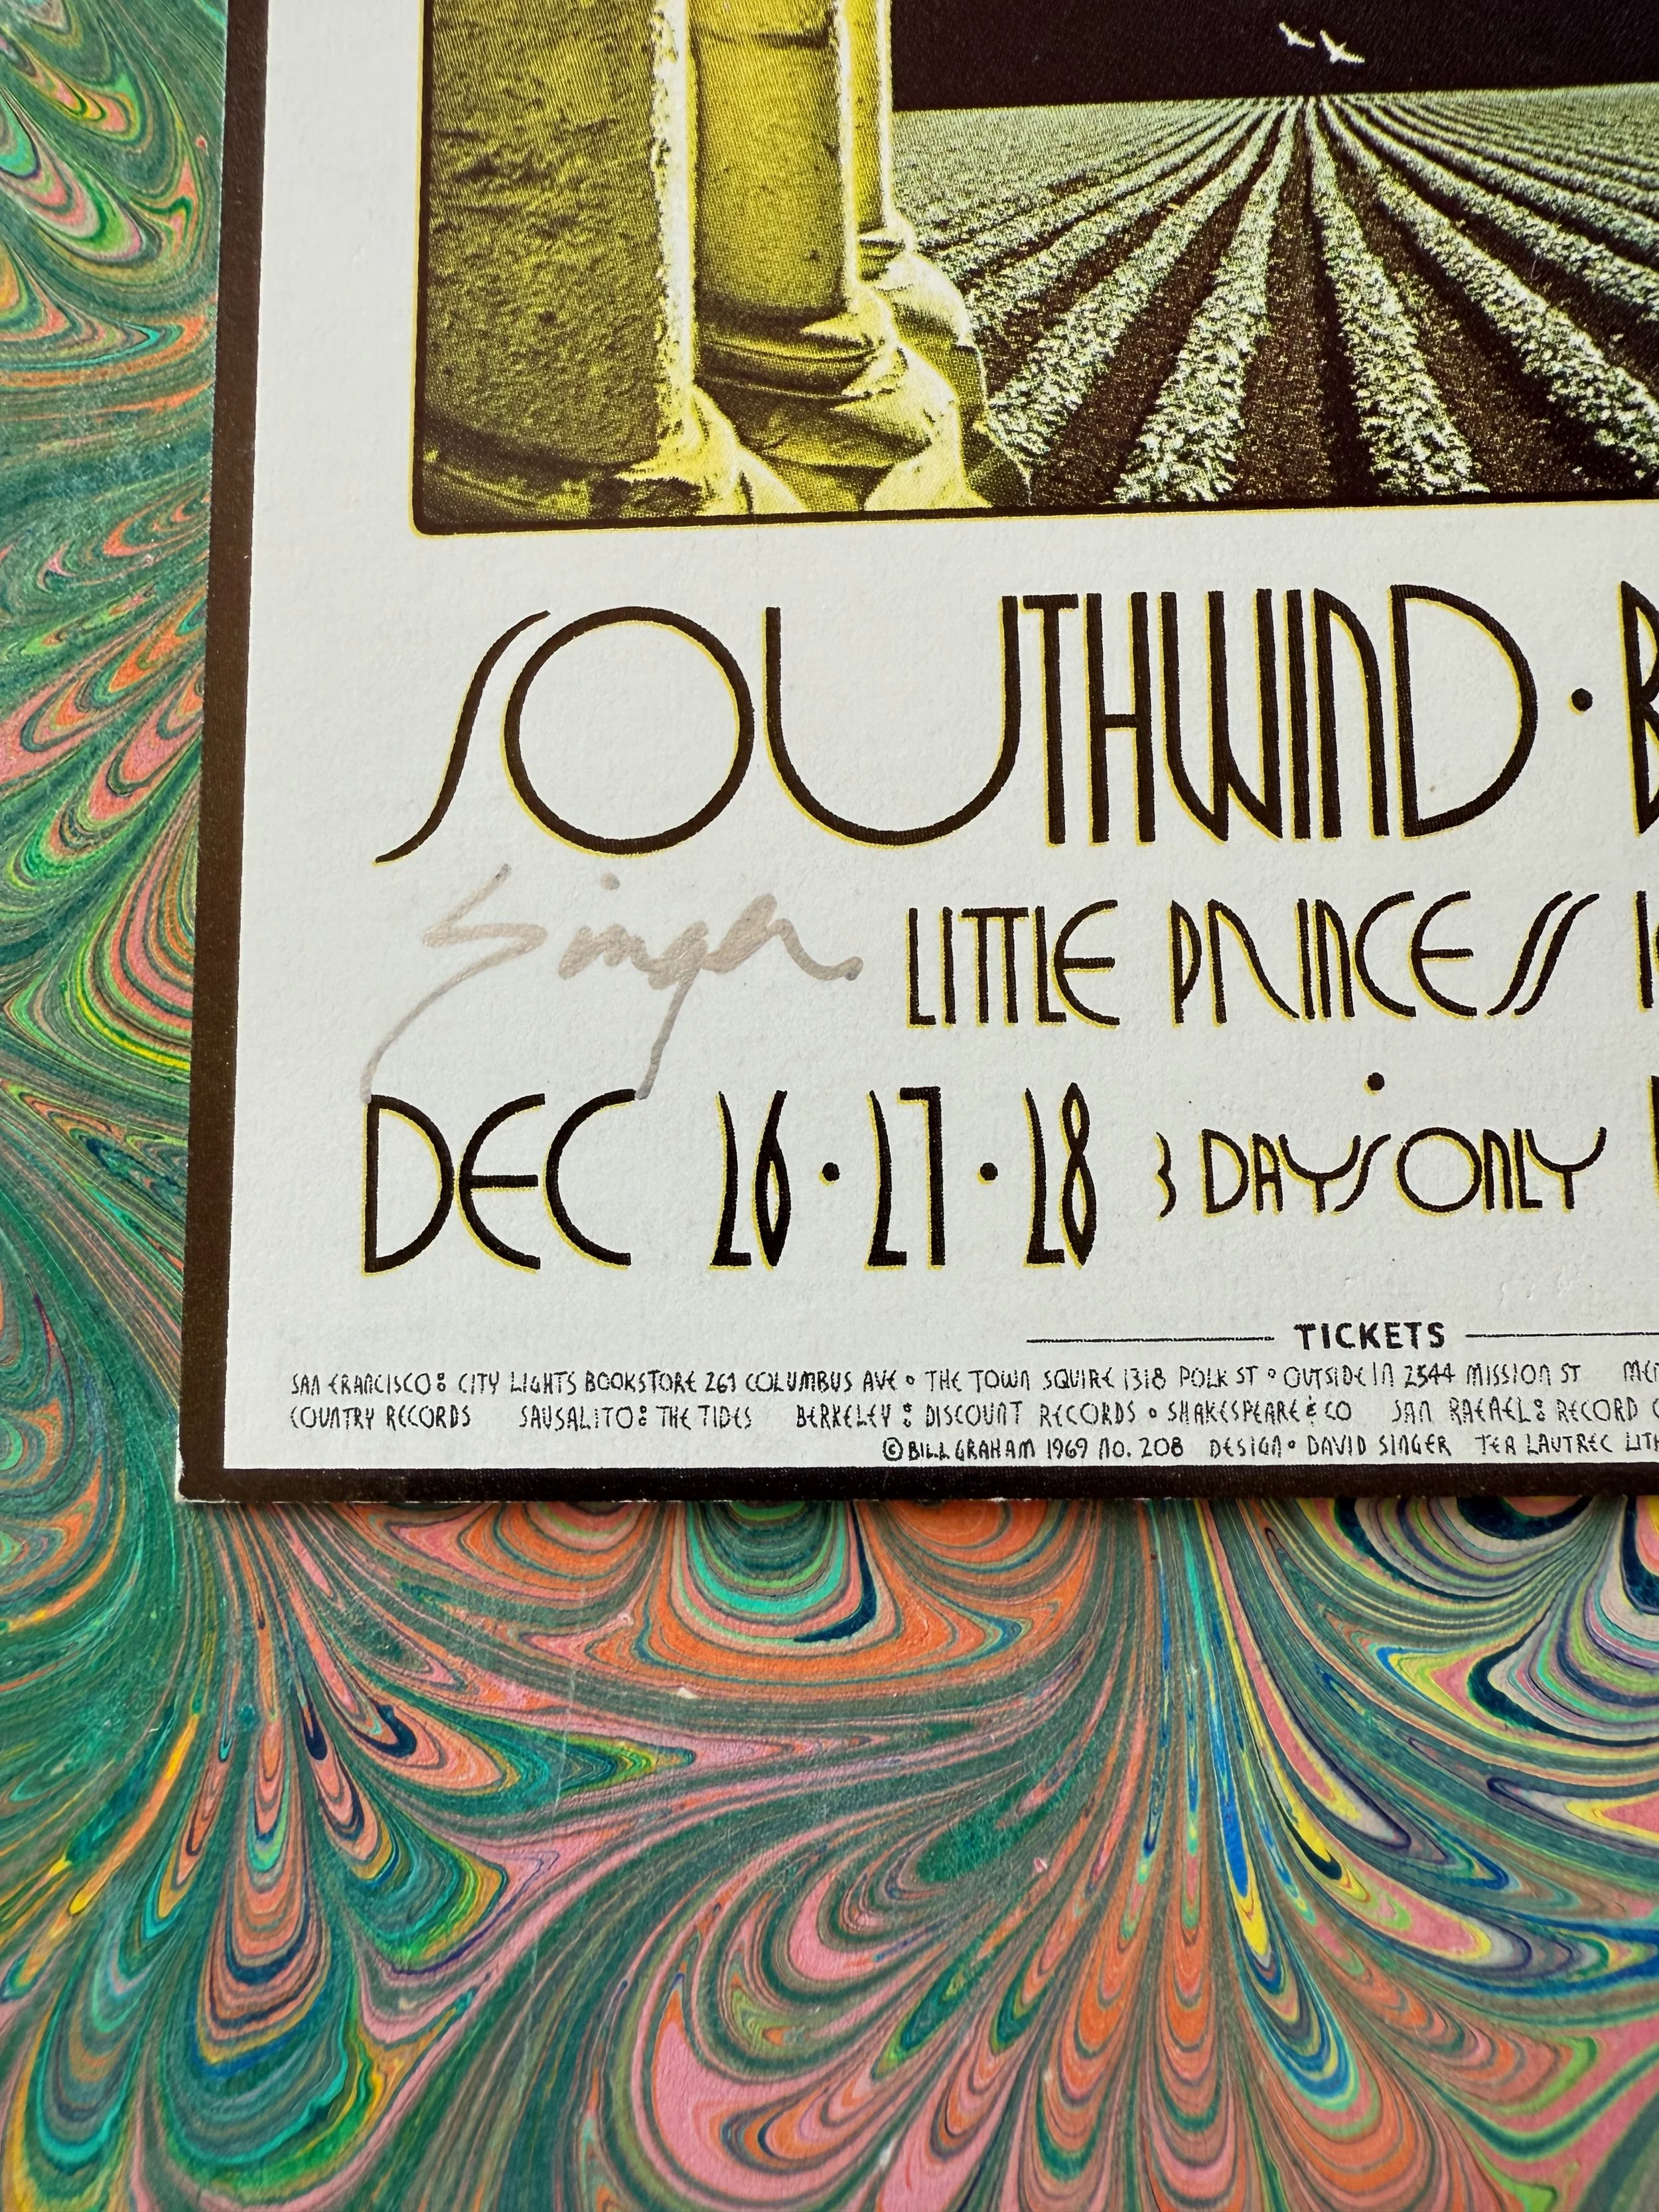 SOUTHWIND ·
Singer
LITTLE PRINCESS
DEC 26 · 27 · 28 3 DAYS ONLY
TICKETS
SAN FRANCISCO: CITY LIGHTS BOOKSTORE 261 COLUMBUS AVE • THE TOWN SQUIRE 1318 POLK ST • OUTSIDE IN 2544 MISSION ST
COUNTRY RECORDS SAUSALITO: THE TIDES BERKELEY: DISCOUNT RECORDS • SHAKESPEARE & CO SAN RAFAEL: RECORD
© BILL GRAHAM 1969 NO. 208 DESIGN• DAVID SINGER TEA LAUTREC